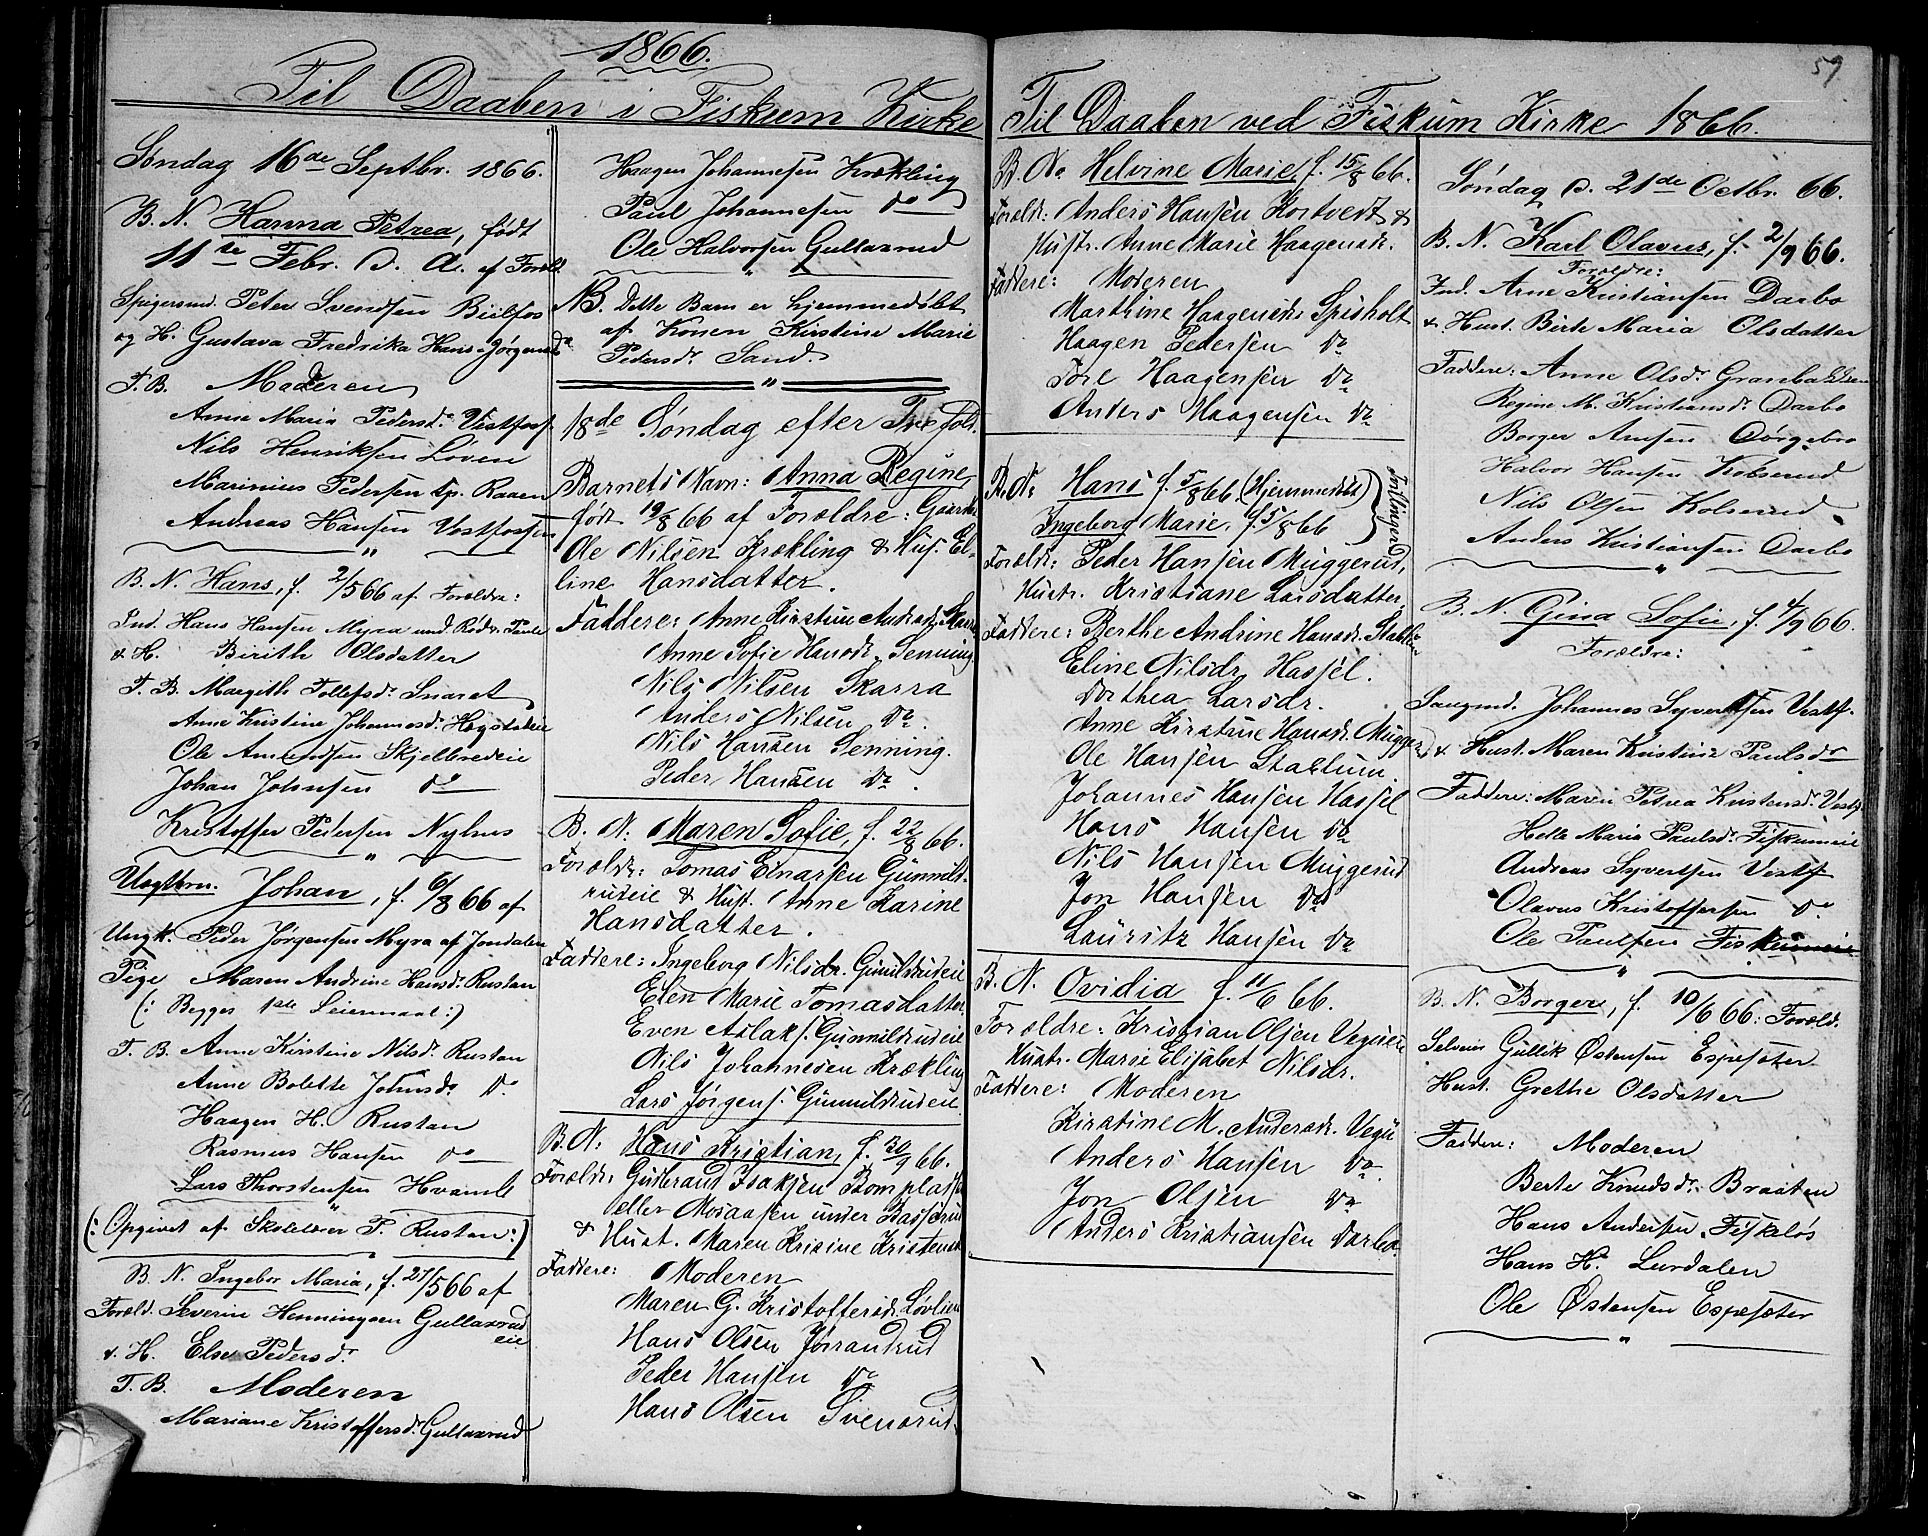 1866.
Til Daaben i Fiskum Kirke
Søndag 16de Septbr. 1866.
B. N. Hanna Petrea, født
11te Febr. d. A. af Foræld.
Spigersmd. Peter Svendsen Bielfos
og H. Gustava Fredrika Hans Jørgensd.
F. B. Moderen
Anne Maria Pedersdr. Vestfos.
Nils Henriksen Løven
Marinius Pedersen Raaen
Andreas Hansen Vestfossen
B. N. Hans, f. 2/5 66 af Forældre:
Ind. Hans Hansen Myra und.
& H. Birith Olsdatter
F. B. Margith Tollefsdr. Snaret
Anne Kristine Johannesdr. Høgstøleie
Ole Amundsen Skjelbredeie
Johan Johnsen do
Kristoffer Pedersen Nyhus
Uægtbrn. Johan, f. 6/8 66 af
Ungk. Peder Jørgensen Myra af Jondalen
Pige Maren Andrine Hansdr. Rustan
(: Begges 1ste Leiermaal:)
F. B. Anne Kirstine Nilsdr. Rustan
Anne Bolette Johnsdr. Do
Haagen H. Rustan
Rasmus Hansen do
Lars Thorstensen Hvamb
(: Opgivet af Skolelærer P. Rustan:)
B. N. Ingebor Maria, f. 27/5 66 af
Foræld. Severin Henningsen Gullaxrud
eie
& H. Else Pedersdr.
F. B. Moderen
Mariane Kristoffersdr. Gullaxrud
Haagen Johannesen Krekling
Paul Johannesen do
Ole Halvorsen Gullaxrud
NB. Dette Barn er hjemmedøbt
af Konen Kirstine Marie
Pedersdr. Sand
18de Søndag efter Trefold.
Barnets Navn: Anna Regine,
født 19/8 66 af Forældre: Gaardbr.
Ole Nilsen Krekling & Hus. El-
line Hansdatter.
Faddere: Anne Kirstine Andersdr. Skarra
Anne Sofie Hansdr. Senning
Nils Nilsen Skarra
Anders Nilsen Do.
Nils Hansen Senning.
Peder Hansen Do.
B. N. Maren Sofie, f. 22/8 66.
Foreldr: Tomas Einarsen Gunnild-
rudeie & Hust. Anne Karine
Hansdatter.
Faddere: Ingeborg Nilsdr. Gunnildrudeie
Elen Marie Tomasdatter
Even Aslaks. Gunnildrudeie
Nils Johannesen Krekling
Lars Jørgens. Gunnildrudeie.
B. N. Hans Kristian, f. 20/9 66.
Foreldr: Gulbrand Isaksen Bomplads
eller Mosaasen under Basserud
& Hust. Maren Krisine Kristensdr
Faddere: Moderen
Maren G. Kristoffersdr. Løvlien
Hans Olsen Jørrandrud
Peder Hansen Do
Hans Olsen Svensrud.
59
Til Daaben ved Fiskum Kirke 1866.
B. N. Helvine Marie, f. 15/8 66.
Foreldr: Anders Hansen Kortvedt &
Hustr. Anne Marie Haagensdr.
Faddere: Moderen
Marthine Haagensdr. Spisholt
Haagen Pedersen Do
Tore Haagensen Do
Anders Haagensen Do
B. N. Hans f. 5/8 66 (Hjemmedøbt)
Ingeborg Marie, f. 5/8 66
Tvillinger
Foreldr: Peder Hansen Muggerud,
Hustr. Kristiane Larsdatter
Faddere: Berthe Andrine Hansdr. Stablum
Eline Nilsdr. Hassel.
Dorthea Larsdr.
Anne Kirstine Hansdr. Muggerud
Ole Hansen Stablum
Johannes Hansen Hassel
Hans Hansen Do
Nils Hansen Muggerud
Jon Hansen Do
Lauritz Hansen Do
B. N. Ovidia f. 11/6 66.
Forældre: Kristian Olsen Vegueie
Hustr. Marie Elisabet Nilsdr.
Faddere: Moderen
Kirstine M. Andersdr. Vegu
Anders Hansen Do.
Jon Olsen Do
Anders Kristiansen Darbo.
Søndag d. 21de Octbr. 66.
B. N. Karl Olavus, f. 2/9 66.
Forældre:
Ind. Arne Kristiansen Darbo
& Hust. Birte Maria Olsdatter
Faddere: Anne Olsdr.
Regine M. Kristiansdr. Darbo
Borger Arnesen Dørgebro
Halvor Hansen Kolserud
Nils Olsen Kolserud
Anders Kristiansen Darbo
B. N. Gina Sofie, f. 4/9 66.
Forældre:
Saugmd. Johannes Syvertsen Vestf.
& Hust. Maren Kristine Paulsdr
Faddere: Maren Petrea Kristensdr. Vestf.
Helle Maria Paulsdr. Fiskumeie
Andreas Syvertsen Vestf.
Olavus Kristoffersen Do.
Ole Paulsen Fiskumeie
B. N. Borger, f. 10/6 66. Foræld.
Selveier Gullik Østensen Espeseter
Hust. Grethe Olsdatter
Faddere: Moderen
Berte Knudsdr. Braaten
Hans Andersen Fiskeløs
Hans H. Lurdalen
Ole Østensen Espeseter